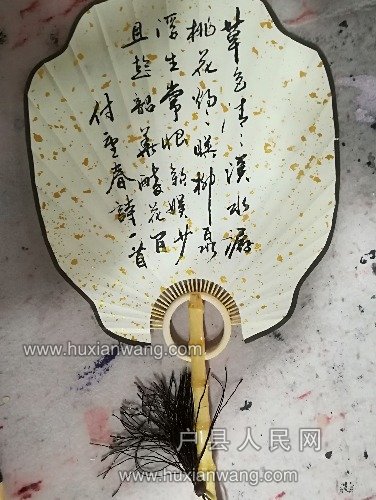 草色青々溪水潺
桃花灼々映柳
浮生常恨歡娱少
且趁韶華醉花间
付 春詩一首
www.huxianwang.com
户县人民网
www.huxianwang.com